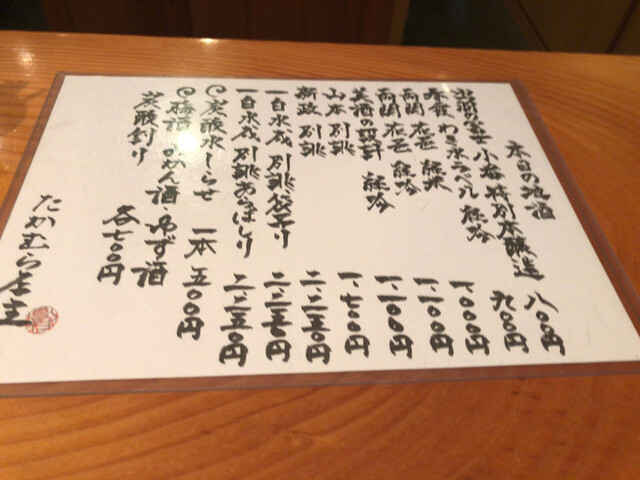 本日の地酒
出羽の富士 小番 特別本醸造 八〇〇円
わき水ラベル 純吟 九〇〇円
春霞 純米 一、〇〇〇円
両関 花邑 純吟 一、一〇〇円
美酒の設計 純吟 一、七〇〇円
山本 別誂
新政 別誂 二、二五〇円
一白水成 別誂 袋吊り 二、二五〇円
一白水成 別誂 あらばしり 二、二五〇円
炭酸水しらせ 一本 五〇〇円
梅酒・みかん酒・ゆず酒
炭酸割り 各七〇〇円
たかむら 店主